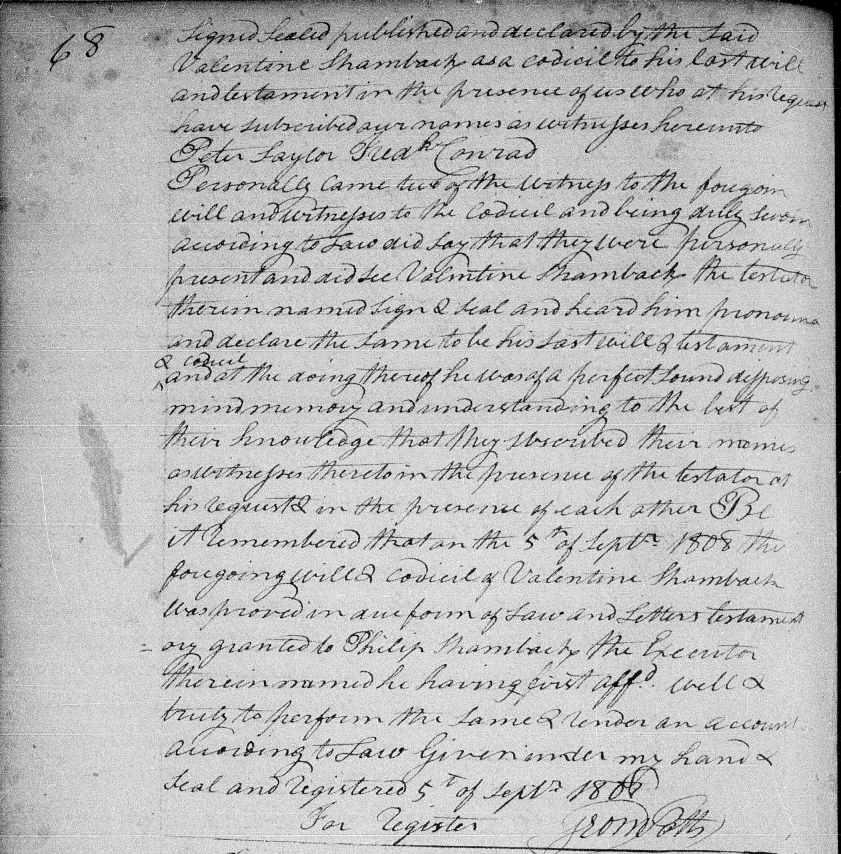 68
Signed Sealed published and declared by the Said
Valentine Shamback as a codicil to his last will
and testament in the presence of us who at his request
have subscribed our names as witnesses hereunto
Peter Saylor Fredk Conrad
Personally came two of the witness to the foregoin
will and witnesses to the Codicil and being duly sworn
according to Law did say that they were personally
present and did see Valentine Shamback the testator
therein named sign & seal and heard him pronounce
and declare the same to be his Last will & testament
& codicil
and at the doing thereof he was of a perfect Sound disposing
mind memory and understanding to the best of
their knowledge that they subscribed their names
as witnesses thereto in the presence of the testator at
his request & in the presence of each other Be
it remembered that on the 5th of Septr 1808 the
foregoing will & codicil of Valentine Shamback
was proved in due form of Law and Letters testament
=ory granted to Philip Shamback the Executor
therein named he having first affd well &
truly to perform the same & render an account
according to Law Given under my hand &
seal and registered 5th of Septr 1808
For Register